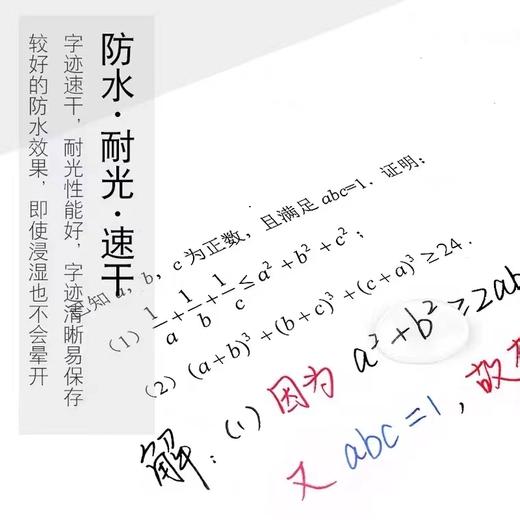 防水·耐光·速干
字迹速干，耐光性能好，字迹清晰易保存
较好的防水效果，即使浸湿也不会晕开
知 a，b，c 为正数，且满足 abc=1．证明：
(1) 1/a+1/b+1/c≤a²+b²+c²；
(2) (a+b)³+(b+c)³+(c+a)³≥24．
解：(1) 因为 a²+b²≥2ab
又 abc=1，故